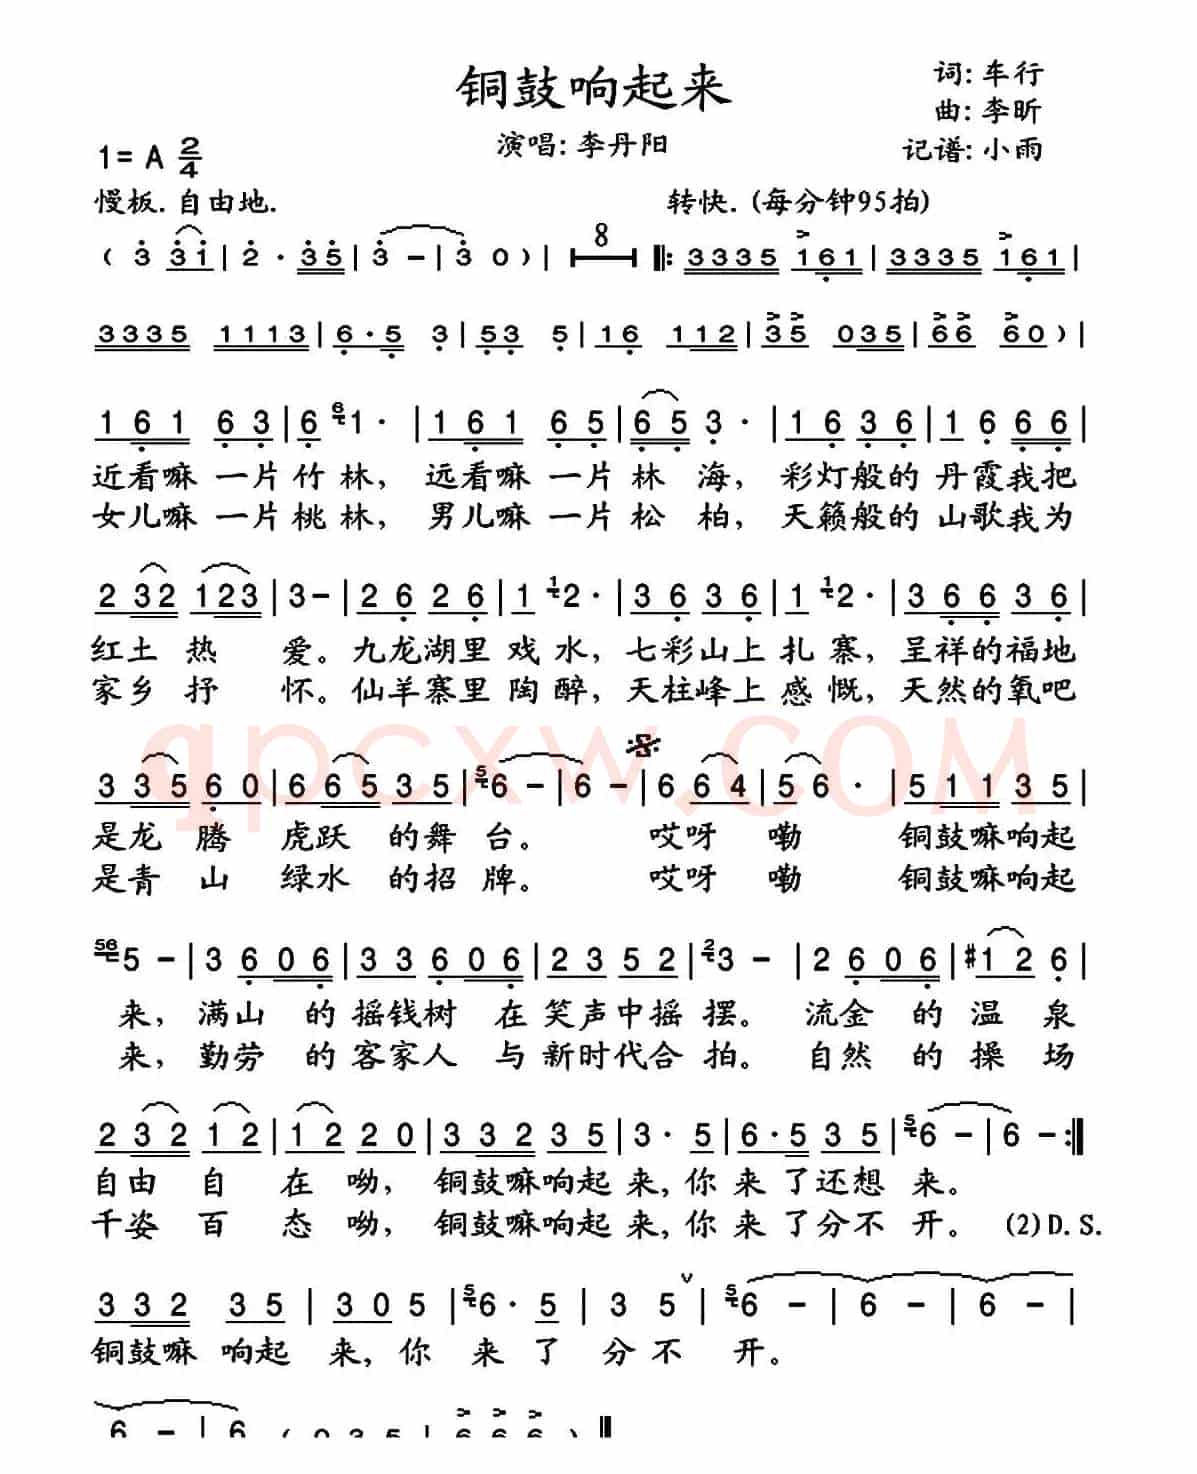 铜鼓响起来
词: 车行
曲: 李昕
演唱: 李丹阳
记谱: 小雨
1= A 2/4
慢板. 自由地.
转快. (每分钟95拍)
( 3 3 1 | 2 · 3 5 | 3 – | 3 0 ) | 8 ‖: 3 3 3 5 1 6 1 | 3 3 3 5 1 6 1 |
3 3 3 5 1 1 1 3 | 6 · 5 3 | 5 3 5 | 1 6 1 1 2 | 3 5 0 3 5 | 6 6 6 0 ) |
1 6 1 6 3 | 6 6 1 · | 1 6 1 6 5 | 6 5 3 · | 1 6 3 6 | 1 6 6 6 |
近看嘛 一片 竹 林, 远看嘛 一片 林 海, 彩灯般的 丹霞我把
女儿嘛 一片 桃 林, 男儿嘛 一片 松 柏, 天籁般的 山歌我为
2 3 2 1 2 3 | 3 – | 2 6 2 6 | 1 1 2 · | 3 6 3 6 | 1 1 2 · | 3 6 6 3 6 |
红土 热 爱。九龙湖里 戏 水, 七彩山上 扎 寨, 呈祥的福地
家乡 抒 怀。仙羊寨里 陶 醉, 天柱峰上 感 慨, 天然的氧吧
qpcxw.COM
3 3 5 6 0 | 6 6 5 3 5 | 5 6 – | 6 – | 6 6 4 | 5 6 · | 5 1 1 3 5 |
是龙 腾 虎跃 的舞 台。 哎呀 嘞 铜鼓嘛响起
是青 山 绿水 的招 牌。 哎呀 嘞 铜鼓嘛响起
56 5 – | 3 6 0 6 | 3 3 6 0 6 | 2 3 5 2 | 2 3 – | 2 6 0 6 | #1 2 6 |
来, 满山 的 摇钱树 在 笑声中摇 摆。 流金 的 温 泉
来, 勤劳 的 客家人 与 新时代合 拍。 自然 的 操 场
2 3 2 1 2 | 1 2 2 0 | 3 3 2 3 5 | 3 · 5 | 6 · 5 3 5 | 5 6 – | 6 – :‖
自由 自 在 呦, 铜鼓嘛响起 来, 你 来 了还想 来。
千姿 百 态 呦, 铜鼓嘛响起 来, 你 来 了分不 开。 (2) D. S.
3 3 2 3 5 | 3 0 5 | 5 6 · 5 | 3 5 ∨ | 5 6 – | 6 – | 6 – |
铜鼓嘛 响起 来, 你 来 了 分 不 开。
6 – | 6 ( 0 3 5 | 6 6 6 ) ‖